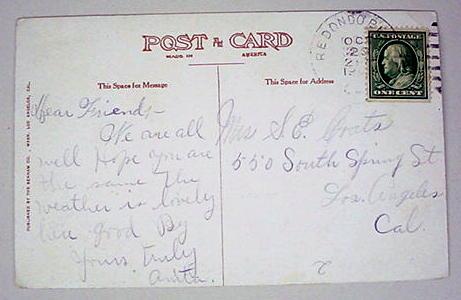 POST CARD
MADE IN AMERICA
This Space for Message
This Space for Address
REDONDO B
OC
U.S. POSTAGE
ONE CENT
Dear Friend,-
We are all
well Hope you are
the same The
weather is lovely
here good By
Yours truly
Anita.
Mrs S.E. Coats
550 South Spring St
Los Angeles
Cal.